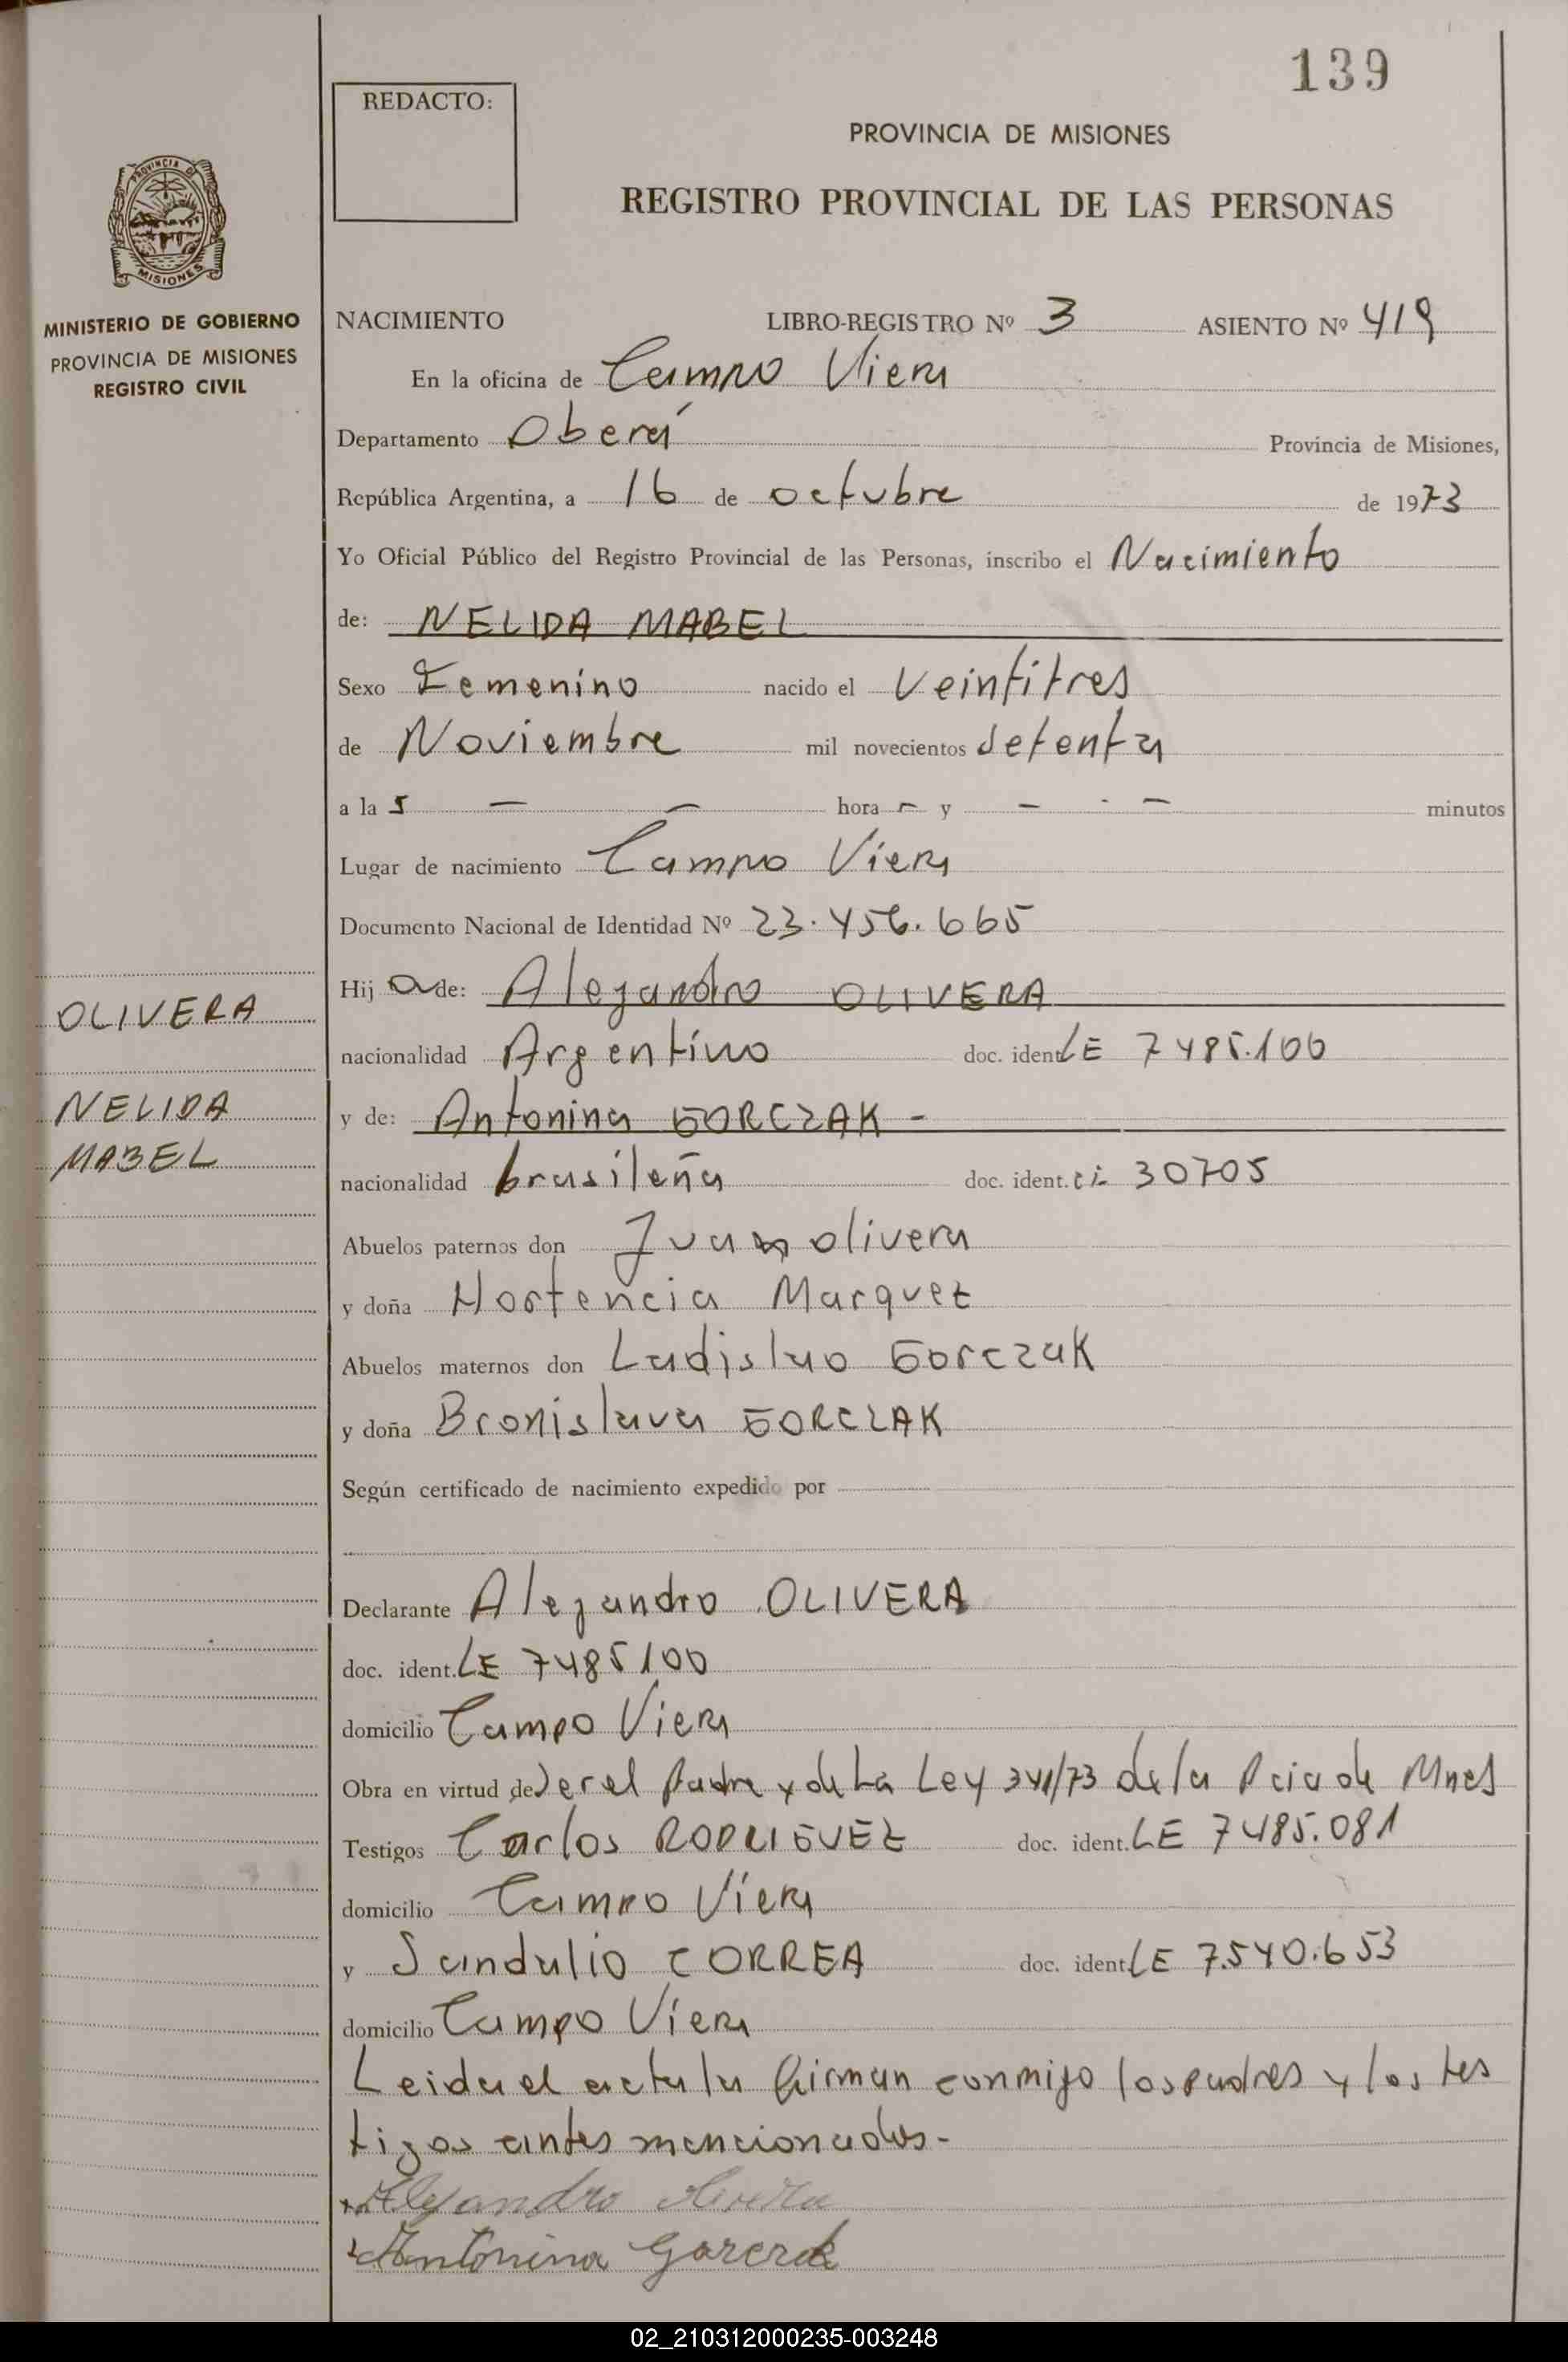 139
REDACTO:
PROVINCIA DE MISIONES
REGISTRO PROVINCIAL DE LAS PERSONAS
PROVINCIA D
MISIONES
MINISTERIO DE GOBIERNO
PROVINCIA DE MISIONES
REGISTRO CIVIL
NACIMIENTO LIBRO-REGISTRO Nº 3 ASIENTO Nº 419
En la oficina de Campo Viera
Departamento Oberá Provincia de Misiones,
República Argentina, a 16 de octubre de 1973
Yo Oficial Público del Registro Provincial de las Personas, inscribo el Nacimiento
de: NELIDA MABEL
Sexo Femenino nacido el Veintitres
de Noviembre mil novecientos setenta
a la s — — hora - y - - - minutos
Lugar de nacimiento Campo Viera
Documento Nacional de Identidad Nº 23.456.665
Hij a de: Alejandro OLIVERA
nacionalidad Argentino doc. ident. LE 7485.100
y de: Antonina GORCZAK -
nacionalidad brasileña doc. ident. ci 30705
Abuelos paternos don Juan olivera
y doña Hortencia Marquez
Abuelos maternos don Ladislao Gorczak
y doña Bronislava GORCZAK
Según certificado de nacimiento expedido por
Declarante Alejandro OLIVERA
doc. ident. LE 7485100
domicilio Campo Viera
Obra en virtud de ser el Padre y de La Ley 341/73 de la Pcia de Mnes
Testigos Carlos RODRIGUEZ doc. ident. LE 7485.081
domicilio Campo Viera
y Sandulio CORREA doc. ident. LE 7.540.653
domicilio Campo Viera
Leida el acta la firman conmigo los padres y los tes
tigos antes mencionados-
Alejandro Olivera
Antonina
OLIVERA
NELIDA
MABEL
02_210312000235-003248